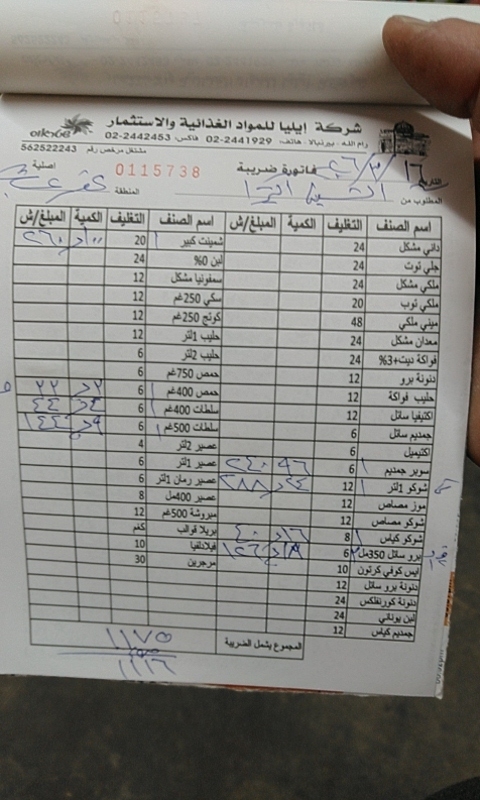 شركة إيليا للمواد الغذائية والاستثمار
رام الله - بيرنبالا - هاتف: 02-2441929 فاكس: 02-2442453
مشتغل مرخص رقم 562522243
التاريخ فاتورة ضريبة 0115738 اصلية
المطلوب من المنطقة
اسم الصنف التغليف الكمية المبلغ/ش اسم الصنف التغليف الكمية المبلغ/ش
داني مشكل 24 شمينت كبير 20
جلي توت 24 لبن 0% 24
ملكي مشكل 24 سمفونيا مشكل 12
ملكي توب 20 سكي 250غم 12
ميني ملكي 48 كوتج 250غم 12
معدان مشكل 24 حليب 1لتر 12
فواكة ديت+3% 24 حليب 2لتر 6
دنونة برو 12 حمص 750غم 6
حليب فواكة 12 حمص 400غم 6 ٢٢
اكتيفيا سائل 12 سلطات 400غم 6 ٤٤
جمديم سائل 6 سلطات 500غم 6 ١٤٤
اكتيميل 6 عصير 2لتر 4
سوبر جمديم 6 ٩٦ ٢٤٠ عصير 1لتر 6
شوكو 1لتر 12 ٢٨٨ عصير رمان 1لتر 6
موز مصاص 12 عصير 400مل 8
شوكو مصاص 12 مبروشة 500غم 12
شوكو كياس 8 بريلا قوالب كغم
برو سائل 350مل 6 فيلادلفيا 10
ايس كوفي كرتون 10 مرجرين 30
دنونة برو سائل 12
دنونة كورنفلكس 24
لبن يوناني 24
جمديم كياس 12
المجموع يشمل الضريبة
١١٧٥
١١١٦